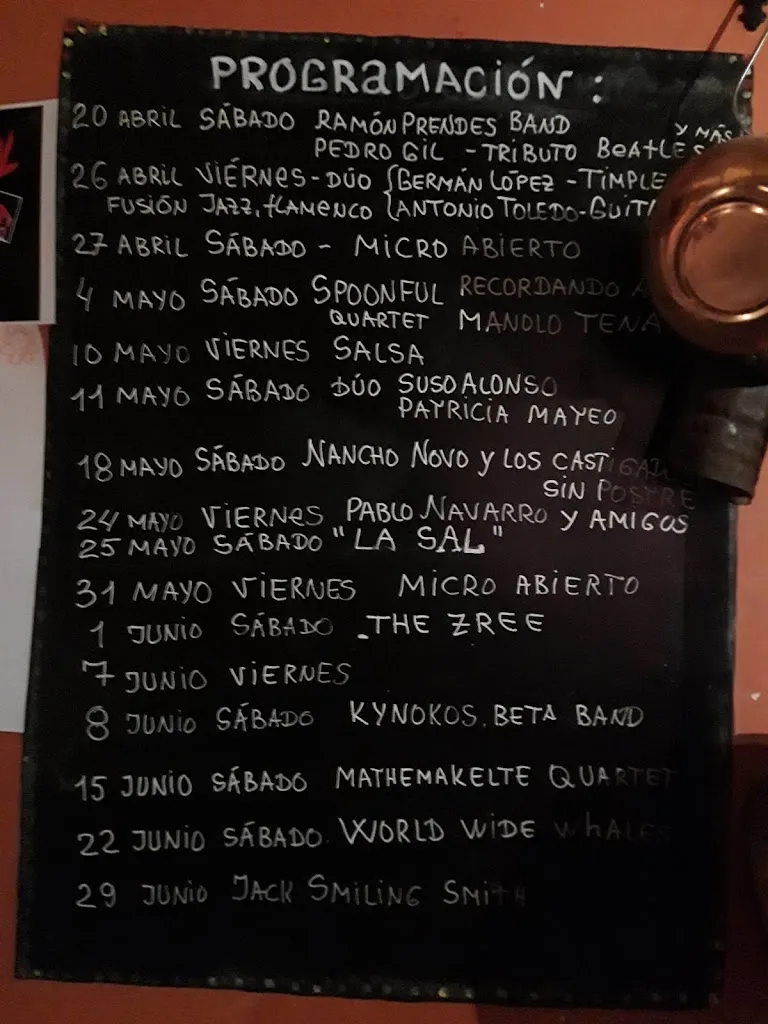 PROGRAMACIÓN :
20 ABRIL SÁBADO RAMÓN PRENDES BAND
Y MÁS
PEDRO GIL - TRIBUTO BEATLES
26 ABRIL VIÉRNES - DÚO GERMÁN LÓPEZ - TIMPLE
FUSIÓN JAZZ, FLAMENCO ANTONIO TOLEDO -
27 ABRIL SÁBADO - MICRO ABIERTO
4 MAYO SÁBADO SPOONFUL RECORDANDO A
QUARTET MANOLO TENA
10 MAYO VIERNES SALSA
11 MAYO SÁBADO DÚO SUSO ALONSO
PATRICIA MAYEO
18 MAYO SÁBADO NANCHO NOVO Y LOS
SIN POSTRE
24 MAYO VIERNES PABLO NAVARRO Y AMIGOS
25 MAYO SÁBADO "LA SAL"
31 MAYO VIERNES MICRO ABIERTO
1 JUNIO SÁBADO .THE ZREE
7 JUNIO VIERNES
8 JUNIO SÁBADO KYNOKOS. BETA BAND
15 JUNIO SÁBADO MATHEMAKELTE QUARTET
22 JUNIO SÁBADO. WORLD WIDE WHALES
29 JUNIO JACK SMILING SMITH